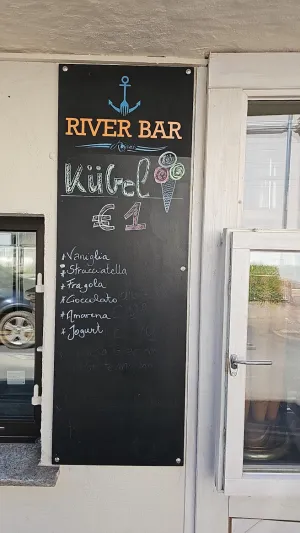 RIVER BAR
Kübel
€ 1
* Vaniglia
* Stracciatella
* Fragola
* Cioccolato
* Amarena
* Jogurt